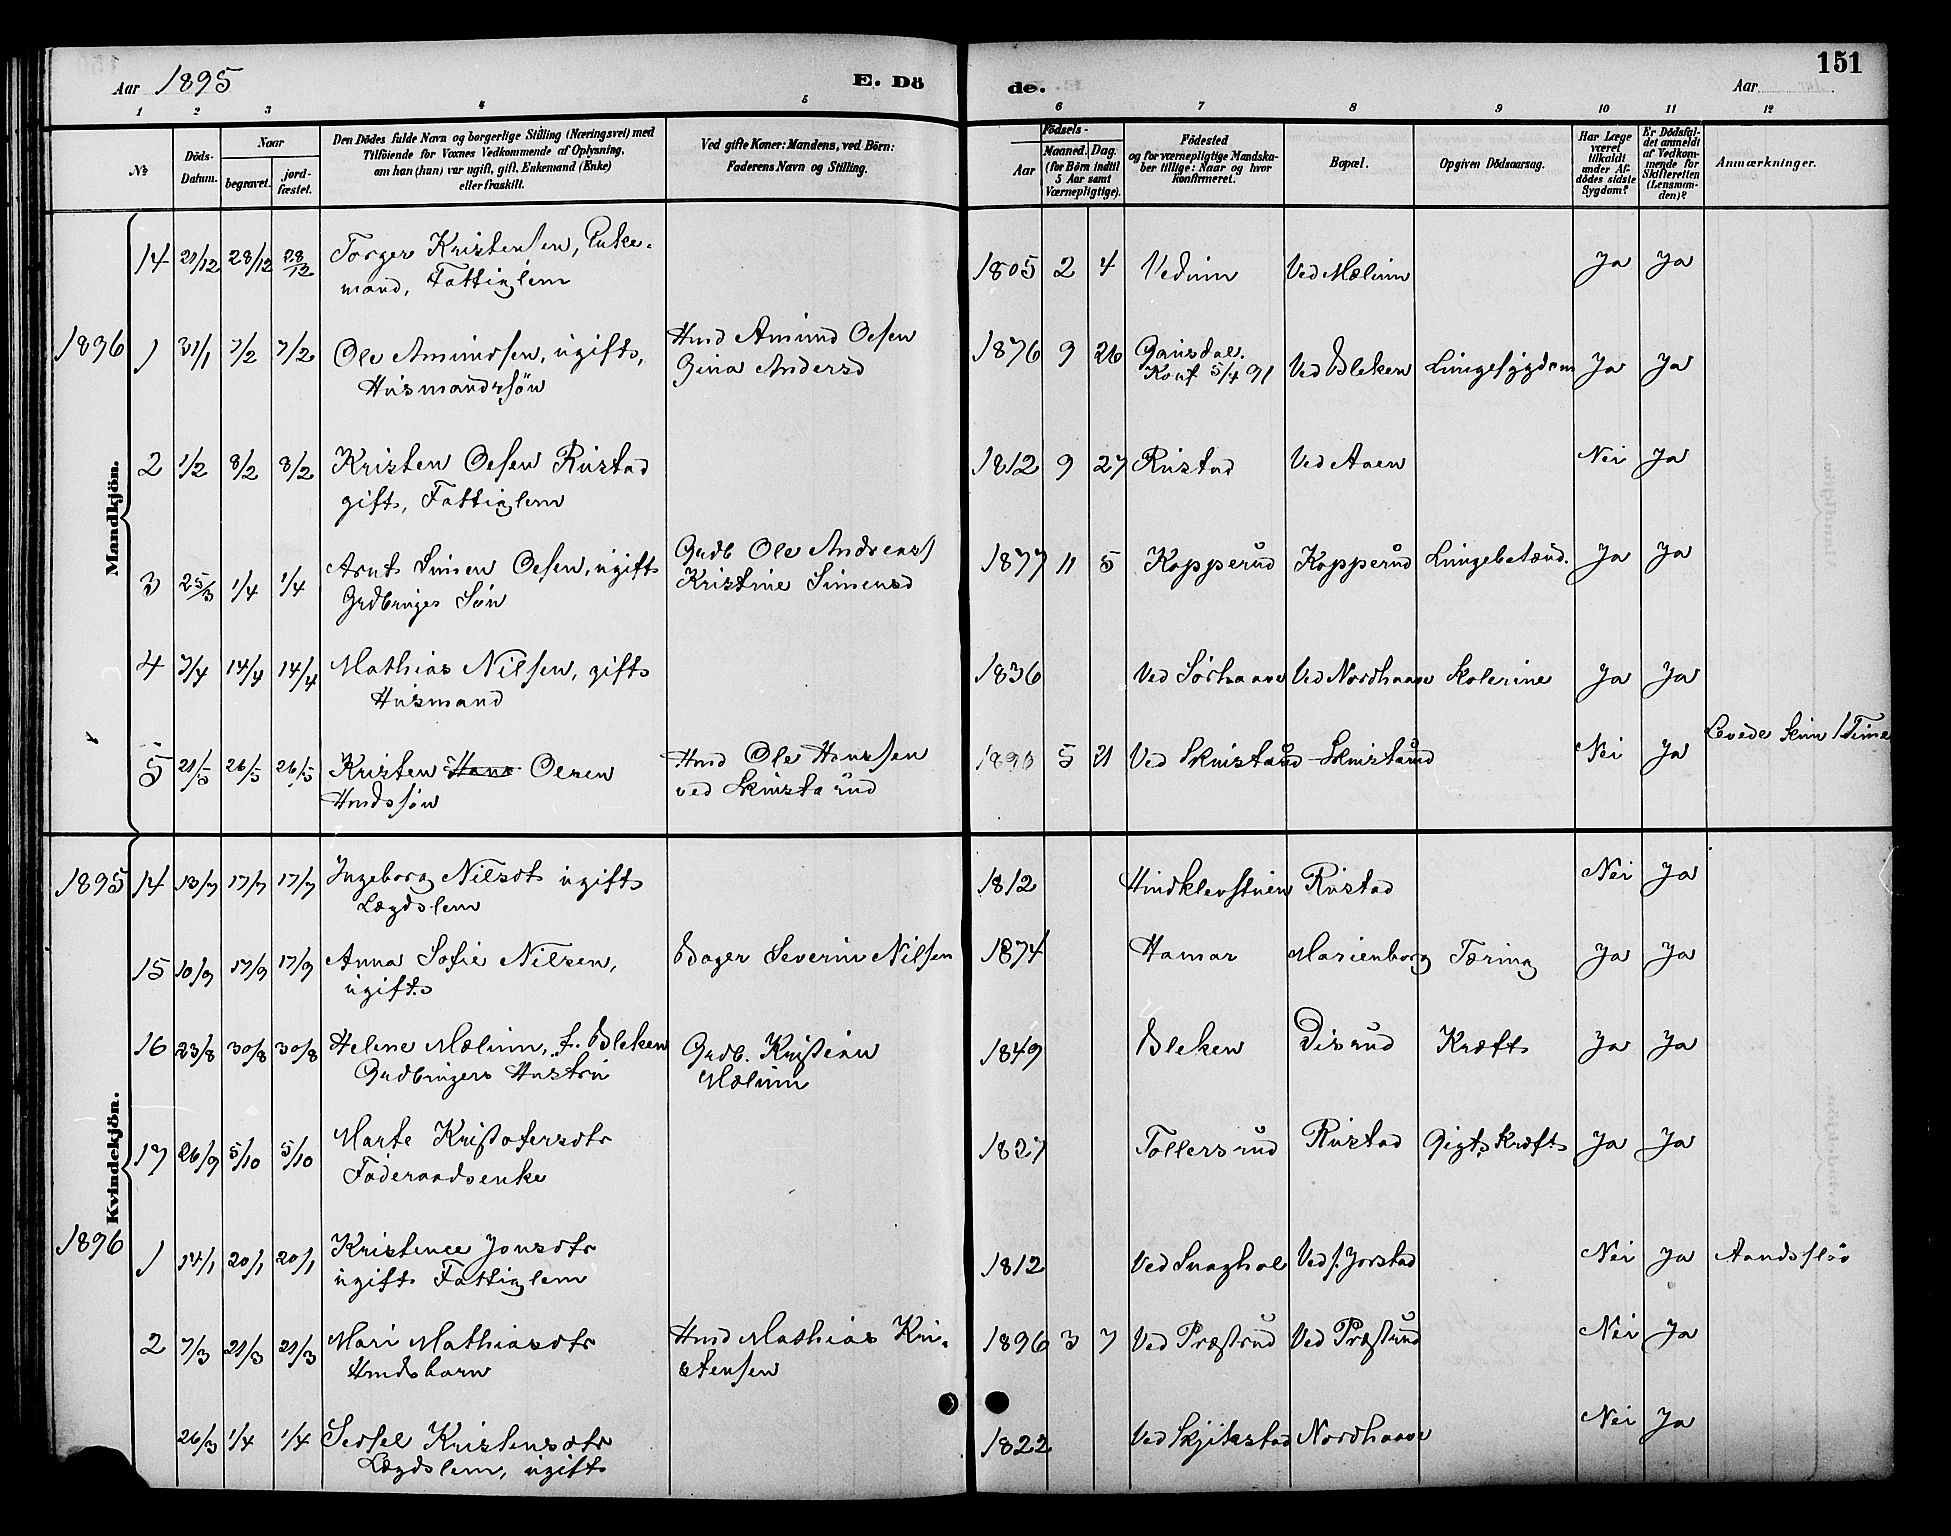 151
Aar 1895
E. Dö
de.
Aar
1 2 3 4 5 6 7 8 9 10 11 12
No
Döds-
Datum.
Naar
begravet.
jord-
fæstet.
Den Dödes fulde Navn og borgerlige Stilling (Næringsvei) med
Tilföiende for Voxnes Vedkommende af Oplysning,
om han (hun) var ugift, gift, Enkemand (Enke)
eller fraskilt.
Ved gifte Koner: Mandens, ved Börn:
Faderens Navn og Stilling.
Födsels-
Aar
Maaned. Dag.
(for Börn indtil
5 Aar samt
Værnepligtige).
Födested
og for værnepligtige Mandska-
ber tillige: Naar og hvor
konfirmeret.
Bopæl.
Opgiven Dödsaarsag.
Har Læge
været
tilkaldt
under Af-
dödes sidste
Sygdom?
Er Dödsfal-
det anmeldt
af Vedkom-
mende for
Skifteretten
(Lensman-
den)?
Anmærkninger.
Mandkjön.
14 21/12 28/12 28/12 Torger Kristensen, Enke- 1805 2 4 Vedum Ved Mælum Ja Ja
mand, Fattiglem
1896 1 31/1 7/2 7/2 Ole Amundsen, ugift, Hmd Amund Olsen 1876 9 26 Gausdal. Ved Bleken Lungesygdom Ja Ja
Husmandssön Gina Andersd Konf 5/4 91
2 1/2 8/2 8/2 Kristen Olsen Rustad 1812 9 27 Rustad Ved Aaen Nei Ja
gift, Fattiglem
3 25/3 1/4 1/4 Arnt Simen Olsen, ugift Grdb Ole Andreass 1877 11 5 Kopperud Kopperud Lungebetænd. Ja Ja
Grdbruges Sön Kristine Simensd
4 7/4 14/4 14/4 Mathias Nilsen, gift 1836 Ved Sörhaave Ved Nordhaave Kolerine Ja Ja
Husmand
5 21/5 26/5 26/5 Kristen Hans Olsen Hmd Ole Hanssen 1896 5 21 Ved Skinstarud Skinstarud Nei Ja Levede kun 1 Time
Hmdssön ved Skinstarud
Kvindekjön.
1895 14 13/7 17/7 17/7 Ingeborg Nilsdt ugift 1812 Hindklevstuen Rustad Nei Ja
Lægdslem
15 10/9 17/9 17/9 Anna Sofie Nilsen, Bager Severin Nilsen 1874 Hamar Marienborg Tæring Ja Ja
ugift
16 23/8 30/8 30/8 Helene Mælum, f. Bleken Grdb. Kristian 1849 Bleken Disrud Kræft Ja Ja
Grdbrugers Hustru Mælum
17 26/9 5/10 5/10 Marte Kristofersdtr 1827 Tollersrud Rustad Gigt, Kræft Ja Ja
Föderaadsenke
1896 1 14/1 20/1 20/1 Kristence Jonsdtr 1812 Ved Snaghol Ved s. Jorstad Nei Ja Aandsslöv
ugift Fattiglem
2 7/3 21/3 21/3 Mari Mathiasdtr Hmd Mathias Kri- 1896 3 7 Ved Præstrud Ved Præstrud Nei Ja
Hmdsbarn stensen
26/3 1/4 1/4 Sersel Kristensdtr 1822 Ved Skjikstad Nordhaave Nei Ja
Lægdslem, ugift